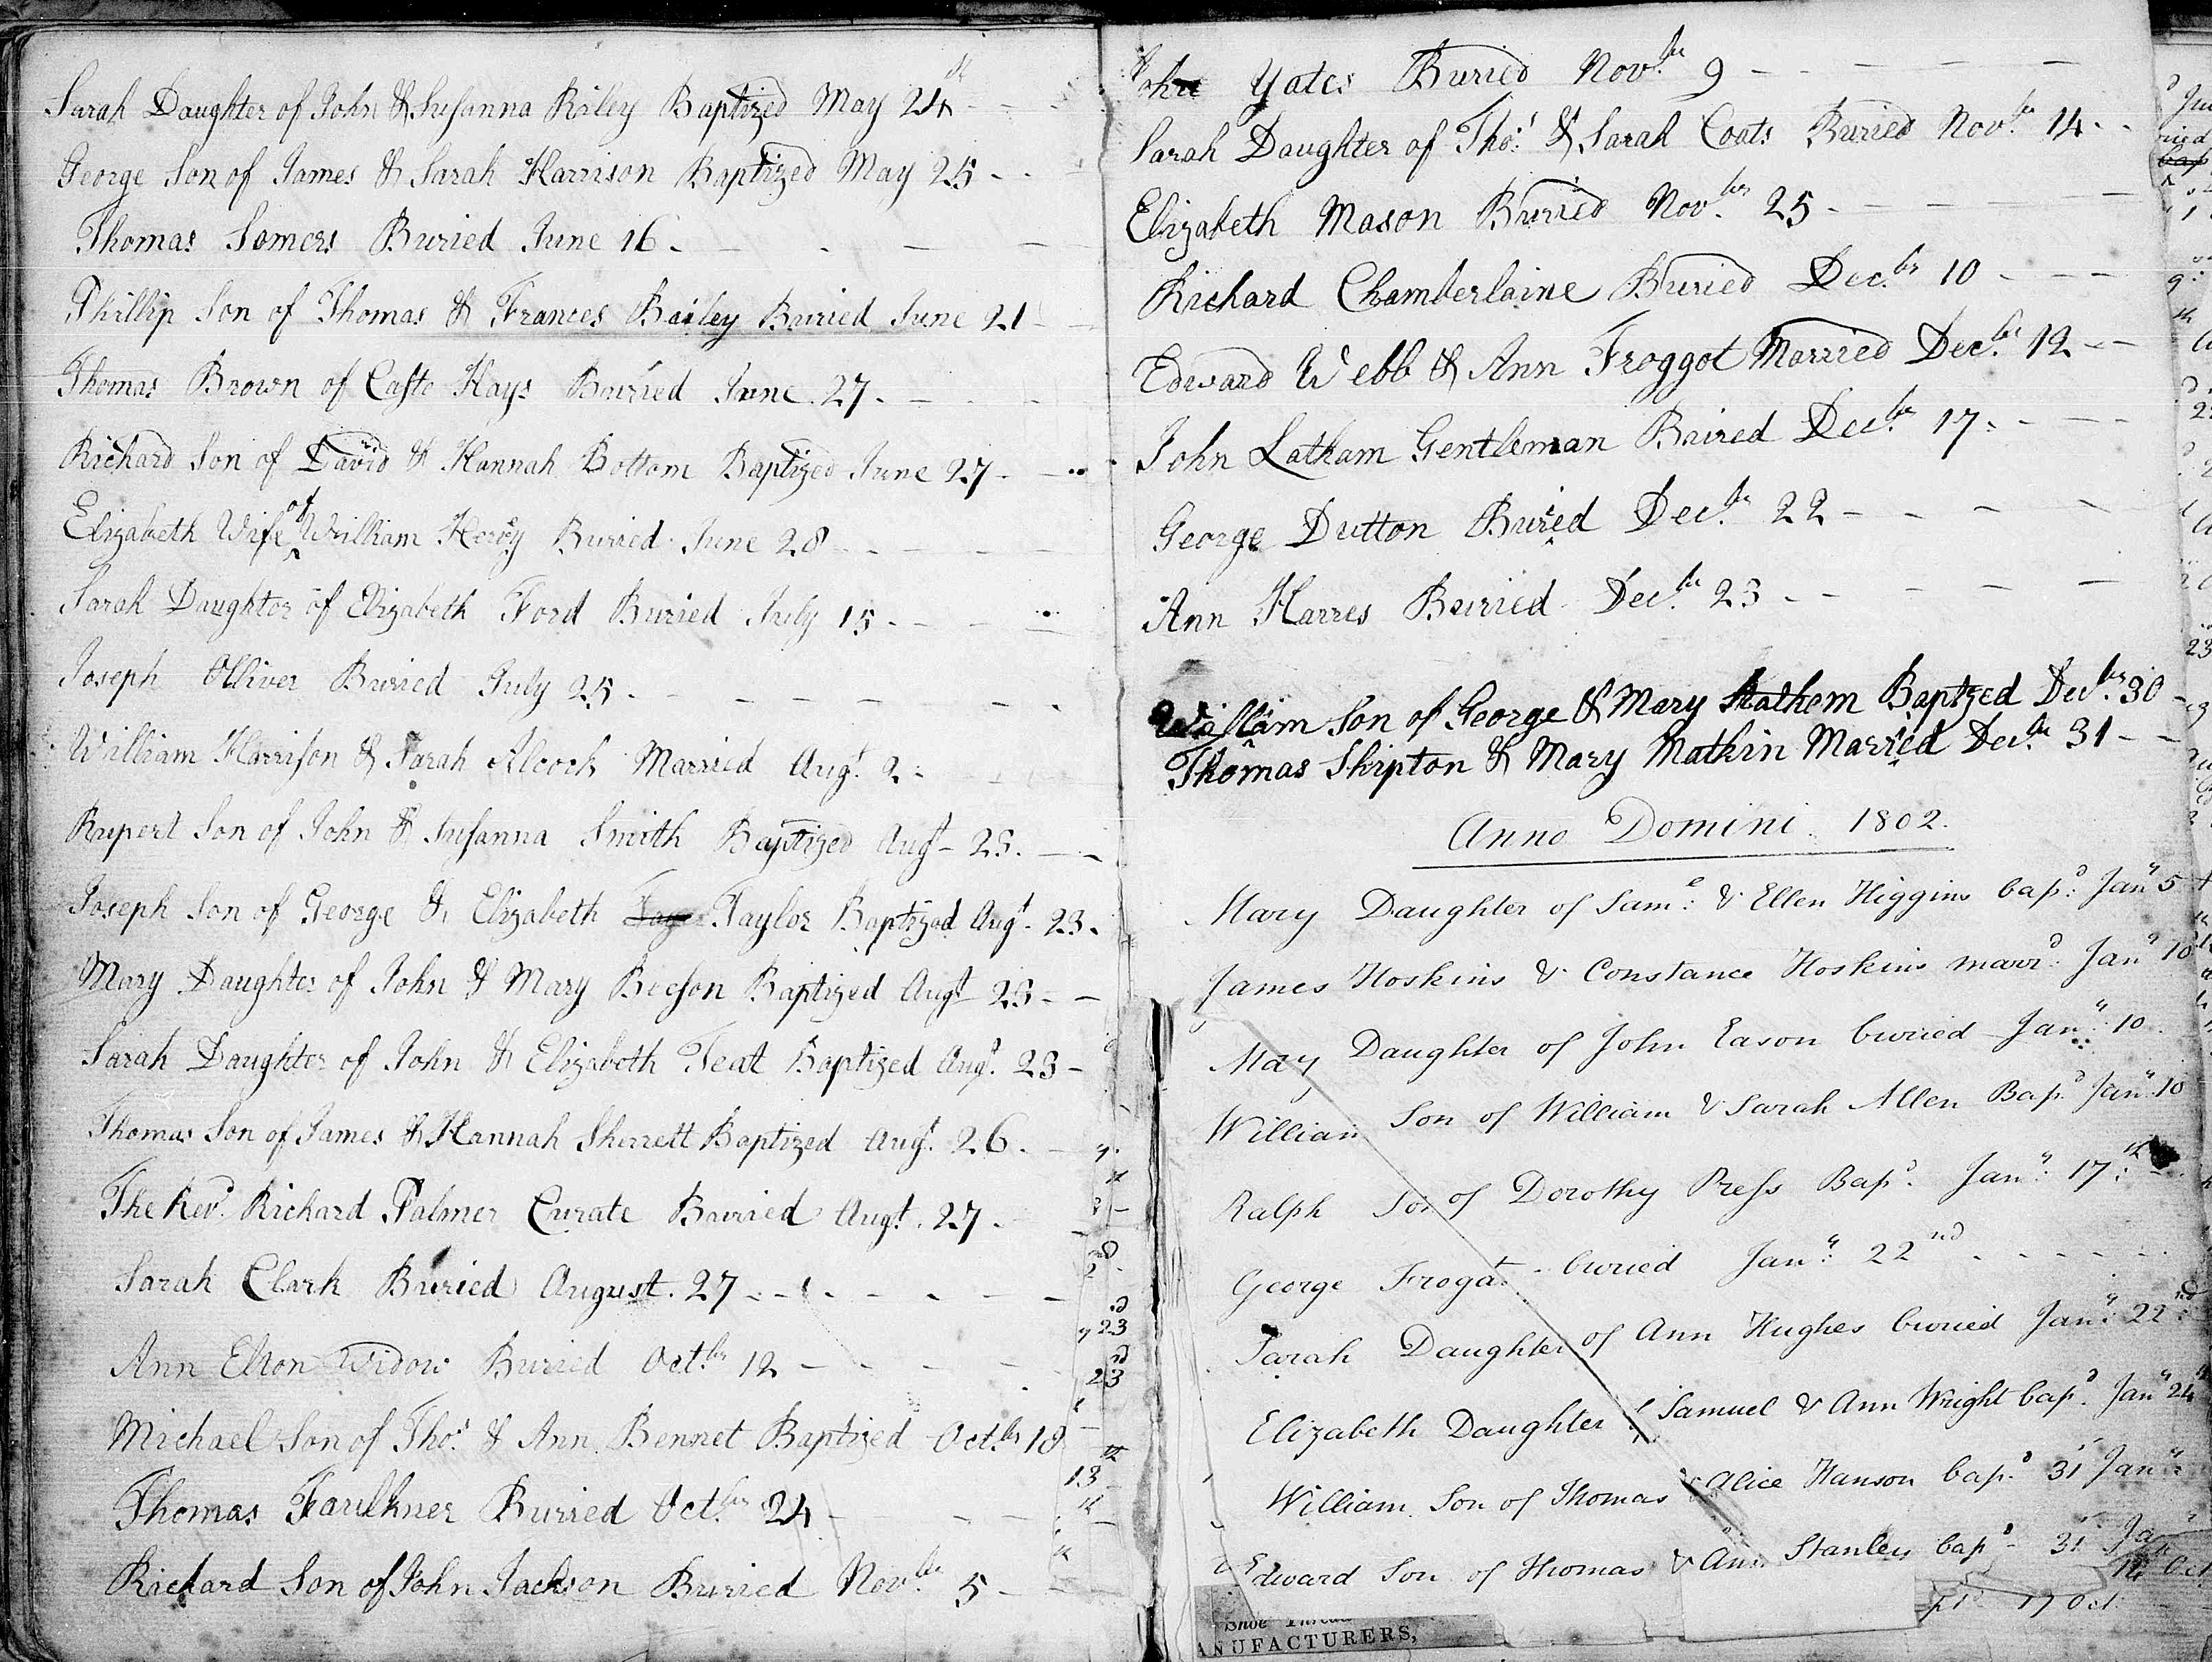 Sarah Daughter of John & Susanna Riley Baptized May 24th
George Son of James & Sarah Harrison Baptized May 25
Thomas Somers Buried June 16
Phillip Son of Thomas & Frances Bailey Buried June 21
Thomas Brown of Castle Hays Buried June 27
Richard Son of David & Hannah Bottom Baptized June 27
Elizabeth Wife of William Hervy Buried June 28
Sarah Daughter of Elizabeth Ford Buried July 15
Joseph Olliver Buried July 25
William Harrison & Sarah Alcock Married Augt 2
Rupert Son of John & Susanna Smith Baptized Augt 23
Joseph Son of George & Elizabeth Tay Taylor Baptized Augt 23
Mary Daughter of John & Mary Beeson Baptized Augt 23
Sarah Daughter of John & Elizabeth Teat Baptized Augt 23
Thomas Son of James & Hannah Sherratt Baptized Augt 26
The Revd Richard Palmer Curate Buried Augt 27
Sarah Clark Buried August 27
Ann Elton Widow Buried Octbr 12
Michael Son of Thos & Ann Bennet Baptized Octbr 18
Thomas Faulkner Buried Octbr 24
Richard Son of John Jackson Buried Novbr 5
John Yates Buried Novbr 9
Sarah Daughter of Thos & Sarah Coats Buried Novbr 14
Elizabeth Mason Buried Novbr 25
Richard Chamberlaine Buried Decbr 10
Edward Webb & Ann Froggot Married Decbr 12
John Latham Gentleman Buired Decbr 17
George Dutton Buried Decbr 22
Ann Harres Buried Decbr 23
William Son of George & Mary Stathem Baptzed Decbr 30
Thomas Shipton & Mary Matkin Married Decbr 31
Anno Domini 1802.
Mary Daughter of Saml & Ellen Higgins bapd Jany 5
James Hoskins & Constance Hoskins marrd Jany 10
Mary Daughter of John Eason buried Jany 10
William Son of William & Sarah Allen Bapd Jany 10
Ralph Son of Dorothy Press Bapd Jany 17th
George Frogat buried Jany 22nd
Sarah Daughter of Ann Hughes buried Jany 22nd
Elizabeth Daughter of Samuel & Ann Wright bapd Jany 24
William Son of Thomas & Alice Hanson bapd 31st Jany
Edward Son of Thomas & Ann Stanley bapd 31st Jany
17 Oct
Shoe Thread
ANUFACTURERS,